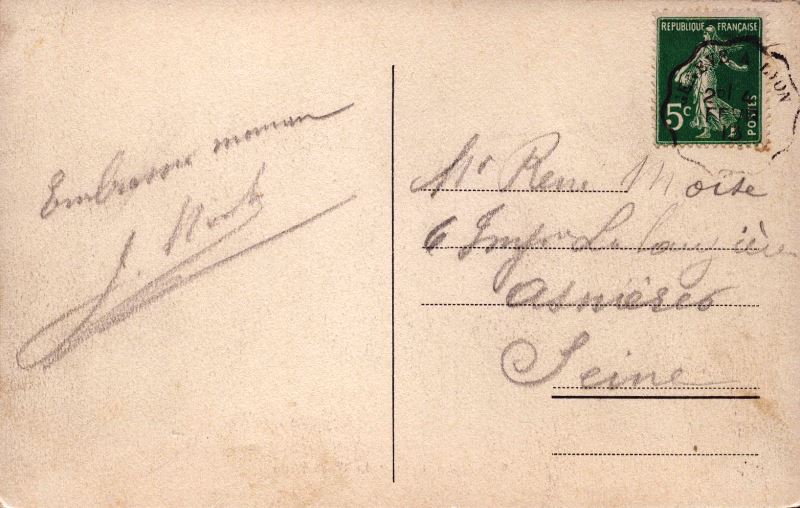 Embrasse maman
J.
REPUBLIQUE FRANÇAISE
5c
POSTES
A LYON
Mr Rene Moise
6 Impse La
Asnières
Seine